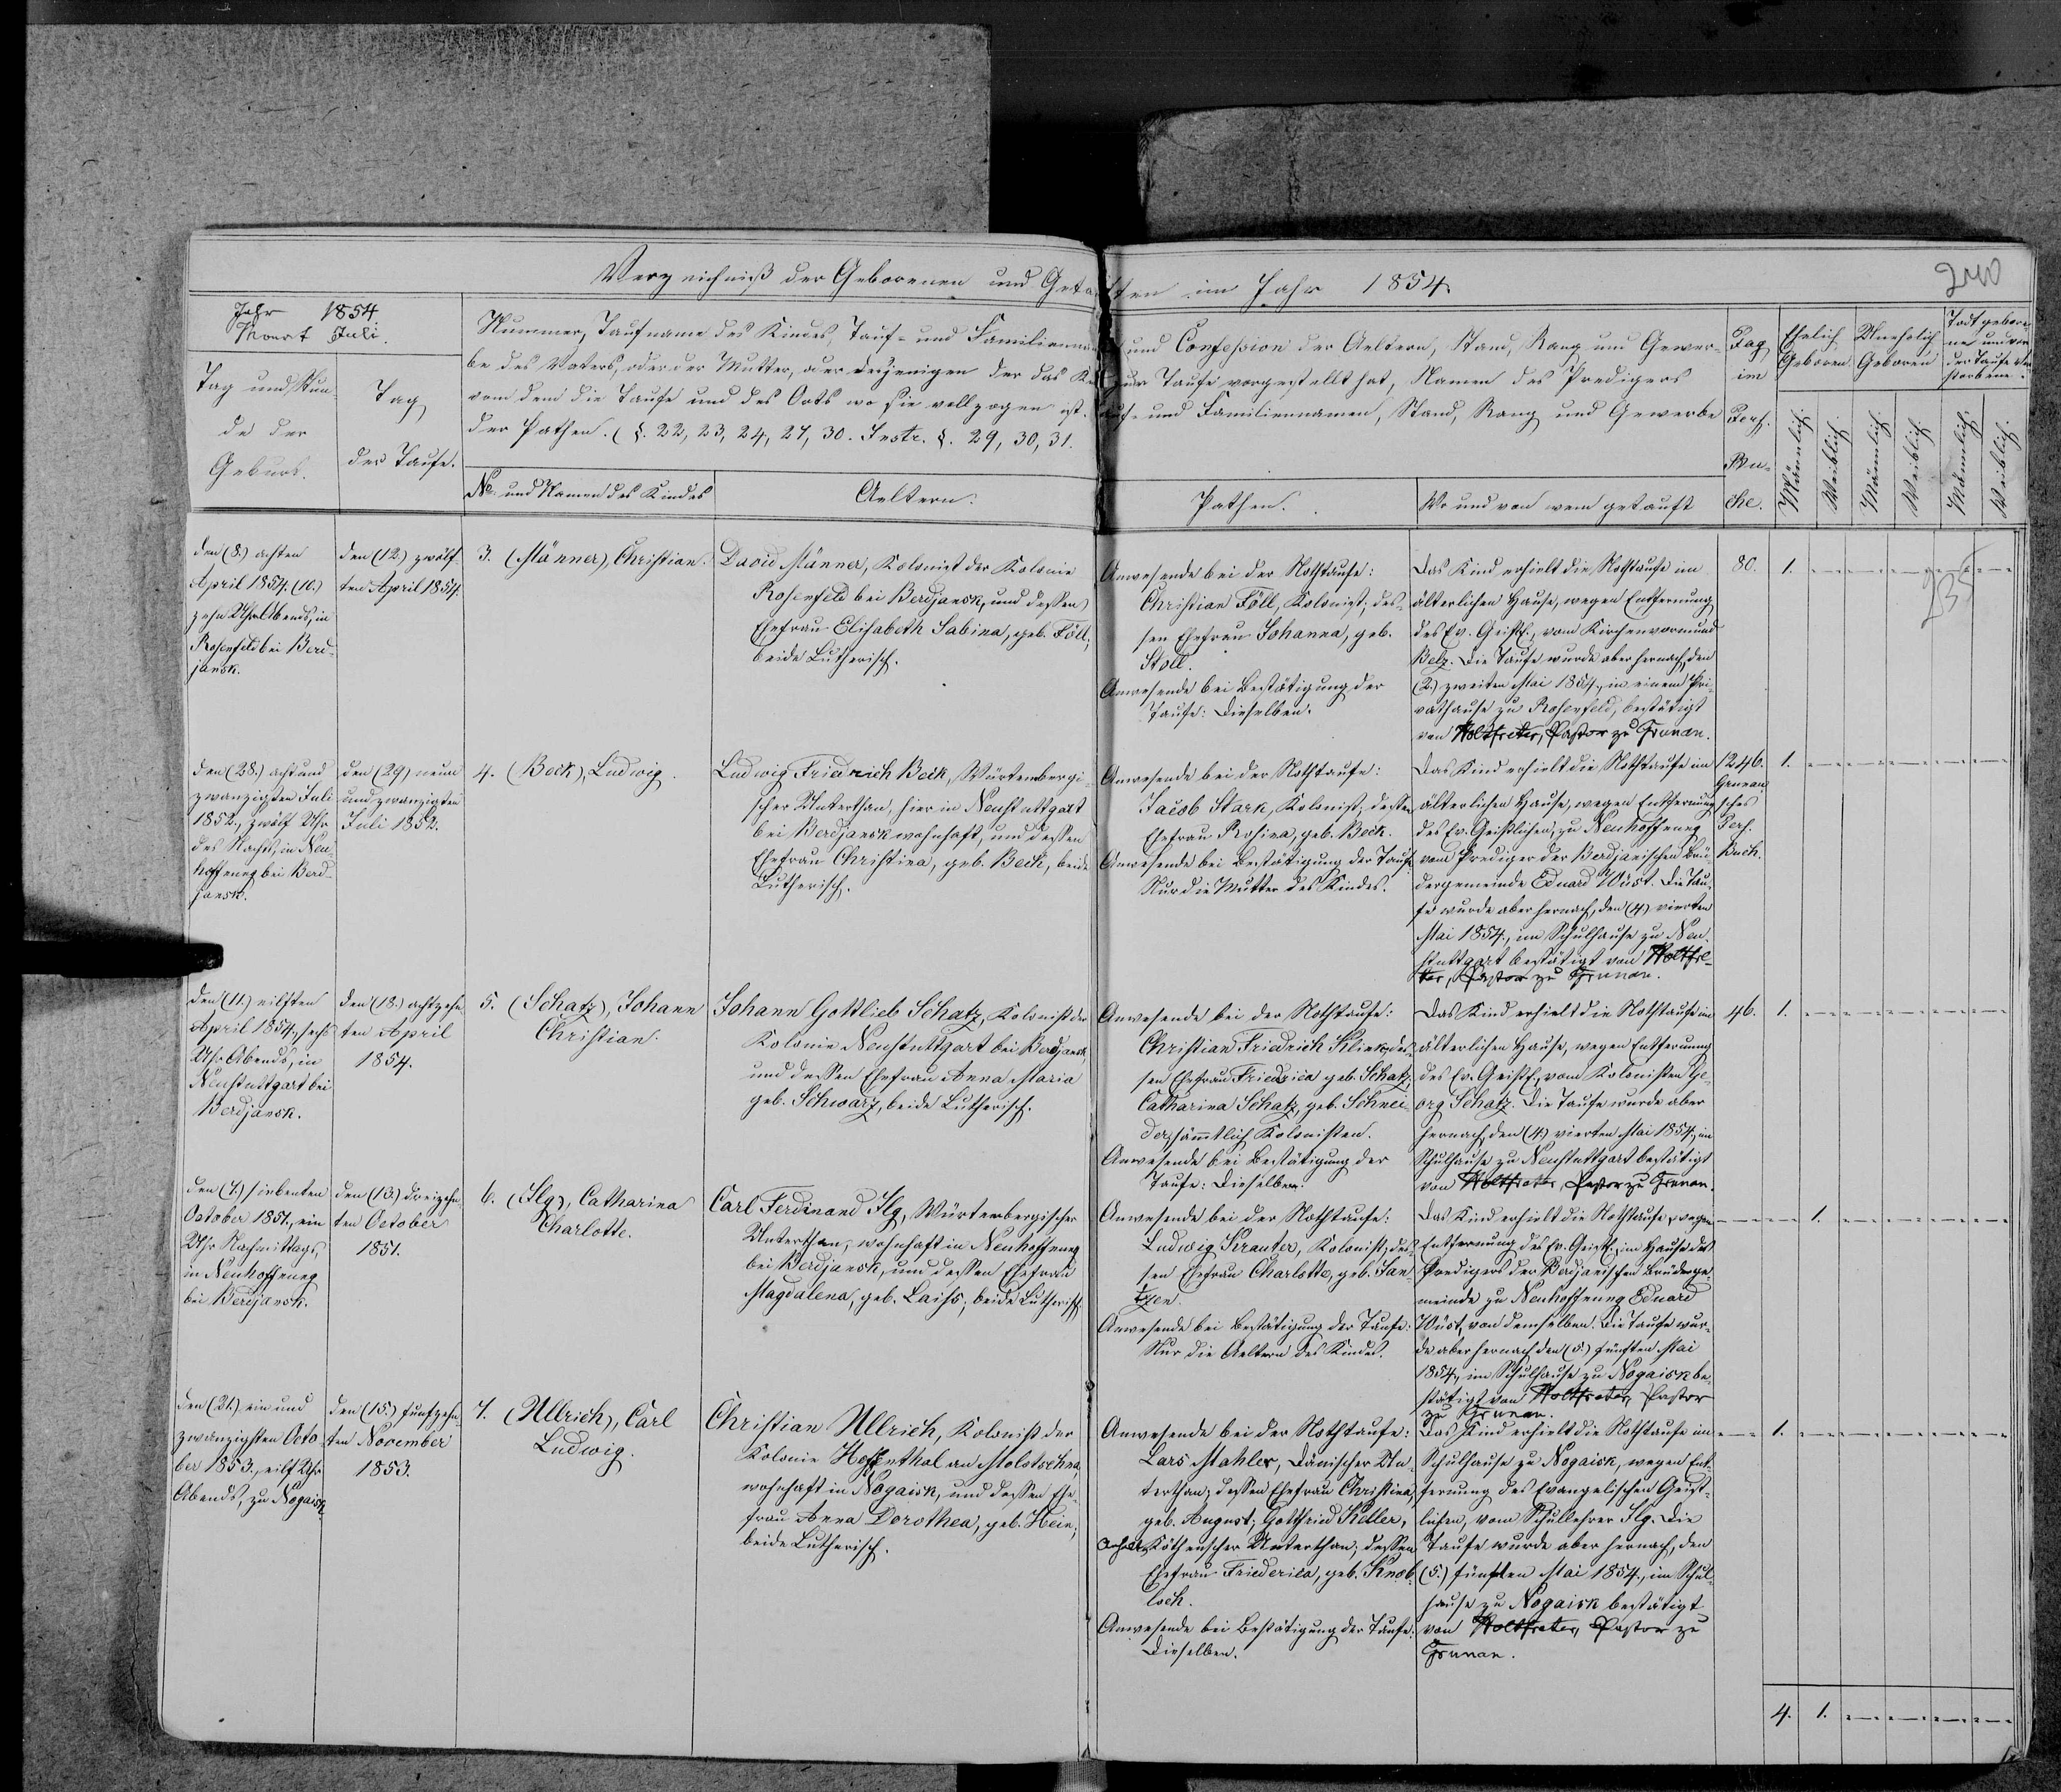 Verzeichniß der Geborenen und Getauften im Jahr 1854.
240
Jahr 1854
Monat Juli.
Tag und Stun-
de der
Geburt.
Tag
der Taufe.
Nummer, Taufname des Kindes, Tauf- und Familienname und Confession der Aeltern, Stand, Rang und Gewer-
be des Vaters, oder der Mutter, oder desjenigen der das Kind zur Taufe vorgestellt hat, Namen des Predigers
von dem die Taufe und des Orts wo sie vollzogen ist. Tauf- und Familiennamen, Stand, Rang und Gewerbe
der Pathen. (§. 22, 23, 24, 27, 30. Instr. §. 29, 30, 31.
No. und Namen des Kindes
Aeltern:
Pathen.
Wo und von wem getauft
Pag
im
Pers.
Bu-
che.
Ehelich
Geboren
Unehelich
Geboren
Todtgebore-
ne und vor
der Taufe Ver-
storbene.
Männlich.
Weiblich.
Männlich.
Weiblich.
Männlich.
Weiblich.
den (8.) achten
April 1854. (10.)
zehn Uhr Abends, in
Rosenfeld bei Berd-
jansk.
den (12.) zwölf-
ten April 1854.
3. (Männer), Christian.
David Männer, Kolonist der Kolonie
Rosenfeld bei Berdjansk, und dessen
Ehefrau Elisabeth Sabina, geb. Föll;
beide Lutherisch.
Anwesende bei der Nothtaufe:
Christian Föll, Kolonist; des-
sen Ehefrau Johanna, geb.
Stoll.
Anwesende bei Bestätigung der
Taufe: Dieselben.
Das Kind erhielt die Nothtaufe im
älterlichen Hause, wegen Entfernung
des Ev. Geistl., vom Kirchenvormund
Belz. Die Taufe wurde aber hernach, den
(2.) zweiten Mai 1854., in einem Pri-
vathause zu Rosenfeld, bestätigt
von Holtfreter, Pastor zu Grunau.
80.
1.
235
den (28.) achtund
zwanzigsten Juli
1852., zwölf Uhr
des Nachts, in Neu-
hoffnung bei Berd-
jansk.
den (29) neun
undzwanzigsten
Juli 1852.
4. (Beck), Ludwig.
Ludwig Friedrich Beck, Würtembergi-
scher Unterthan, hier in Neustuttgart
bei Berdjansk wohnhaft, und dessen
Ehefrau Christina, geb. Beck, beide
Lutherisch.
Anwesende bei der Nothtaufe:
Jacob Stark, Kolonist, dessen
Ehefrau Rosina, geb. Beck.
Anwesende bei Bestätigung der Taufe:
Nur die Mutter des Kindes.
Das Kind erhielt die Nothtaufe im
älterlichen Hause, wegen Entfernung
des Ev. Geistlichen, zu Neuhoffnung
vom Prediger der Berdjanschen Brü-
dergemeinde Eduard Wüst. Die Tau-
fe wurde aber hernach, den (4.) vierten
Mai 1854., im Schulhause zu Neu-
stuttgart bestätigt von Holtfre-
ter, Pastor zu Grunau.
1246.
Grunau
sches
Pers.
Buch.
1.
den (11.) eilften
April 1854., sechs
Uhr Abends, in
Neustuttgart bei
Berdjansk.
den (18.) achtzehn-
ten April
1854.
5. (Schatz), Johann
Christian.
Johann Gottlieb Schatz, Kolonist der
Kolonie Neustuttgart bei Berdjansk,
und dessen Ehefrau Anna Maria
geb. Schwarz, beide Lutherisch.
Anwesende bei der Nothtaufe:
Christian Friedrich Klink, des-
sen Ehefrau Friedrica geb. Schatz;
Catharina Schatz, geb. Schnei-
der, sämmtlich Kolonisten.
Anwesende bei Bestätigung der
Taufe: Dieselben.
Das Kind erhielt die Nothtaufe im
älterlichen Hause, wegen Entfernung
des Ev. Geistl., vom Kolonisten Ge-
org Schatz. Die Taufe wurde aber
hernach, den (4.) vierten Mai 1854., im
Schulhause zu Neustuttgart bestätigt
von Holtfreter, Pastor zu Grunau.
46.
1.
den (7.) siebenten
October 1851., ein
Uhr Nachmittags,
in Neuhoffnung
bei Berdjansk.
den (13.) dreizehn-
ten October
1851.
6. (Ilg), Catharina
Charlotte.
Carl Ferdinand Ilg, Würtembergischer
Unterthan, wohnhaft in Neuhoffnung
bei Berdjansk, und dessen Ehefrau
Magdalena, geb. Laiss; beide Lutherisch.
Anwesende bei der Nothtaufe:
Ludwig Krauter, Kolonist, des-
sen Ehefrau Charlotte, geb. Jan-
tzen.
Anwesende bei Bestätigung der Taufe:
Nur die Aeltern des Kindes.
Das Kind erhielt die Nothtaufe, wegen
Entfernung des Ev. Geistl., im Hause des
Predigers der Berdjanschen Brüderge-
meinde zu Neuhoffnung Eduard
Wüst, von demselben. Die Taufe wur-
de aber hernach den (5.) fünften Mai
1854., im Schulhause zu Nogaisk be-
stätigt von Holtfreter, Pastor
zu Grunau.
1.
den (21.) ein und
zwanzigsten Octo-
ber 1853., eilf Uhr
Abends, zu Nogaisk
den (15.) fünfzehn-
ten November
1853.
7. (Ullrich), Carl
Ludwig.
Christian Ullrich, Kolonist der
Kolonie Hoffenthal an Molotschna,
wohnhaft in Nogaisk, und dessen Ehe-
frau Anna Dorothea, geb. Hein;
beide Lutherisch.
Anwesende bei der Nothtaufe:
Lars Mahler, Dänischer Un-
terthan; dessen Ehefrau Christina,
geb. August; Gottfried Keller,
Anhalt Köthenscher Unterthan; dessen
Ehefrau Friederica, geb. Knob-
loch.
Anwesende bei Bestätigung der Taufe:
Dieselben.
Das Kind erhielt die Nothtaufe im
Schulhause zu Nogaisk, wegen Ent-
fernung des Evangelischen Geist-
lichen, vom Schullehrer Ilg. Die
Taufe wurde aber hernach, den
(5.) fünften Mai 1854., im Schul-
hause zu Nogaisk bestätigt
von Holtfreter, Pastor zu
Grunau.
1.
4. 1.